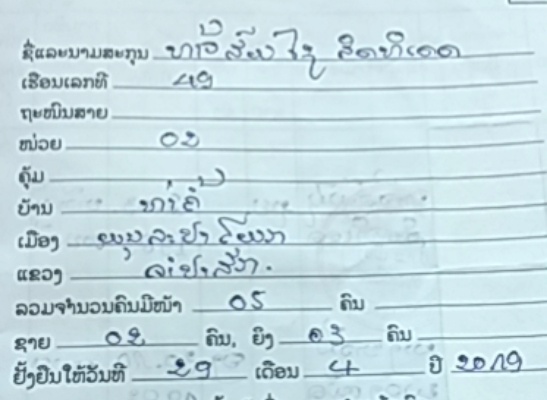 ຊື່ແລະນາມສະກຸນ ທ້າວ ສົມໄຊ
ເຮືອນເລກທີ 49
ຖະໜົນສາຍ
ໜ່ວຍ 02
ຄຸ້ມ
ບ້ານ
ເມືອງ
ແຂວງ ຈຳປາສັກ.
ລວມຈຳນວນຄົນມີໜ້າ 05 ຄົນ
ຊາຍ 02 ຄົນ, ຍິງ 03 ຄົນ
ຢັ້ງຢືນໃຫ້ວັນທີ 29 ເດືອນ 4 ປີ 2019